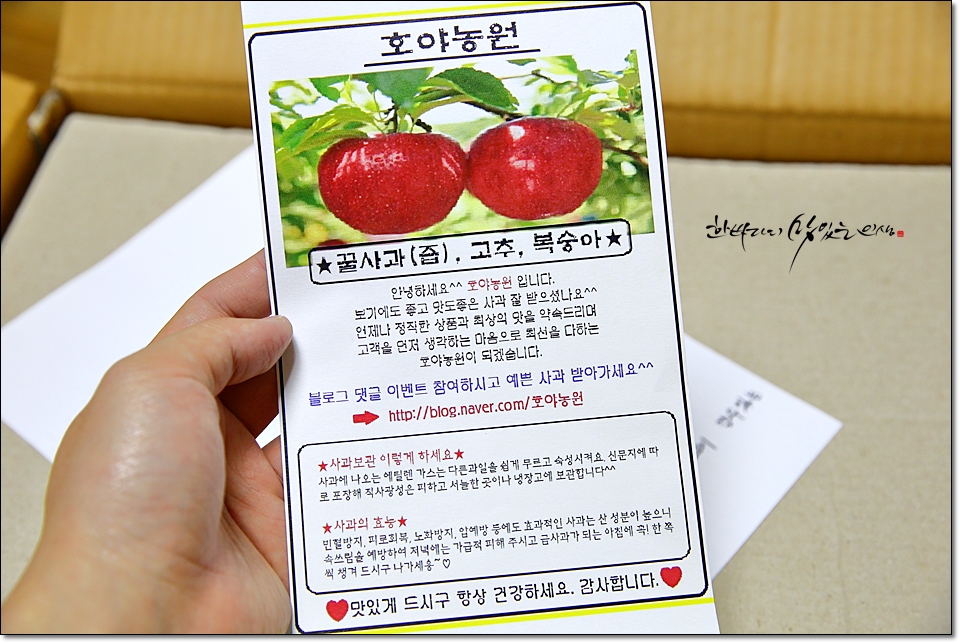 호야농원
★꿀사과(즙), 고추, 복숭아★
안녕하세요^^ 호야농원 입니다.
보기에도 좋고 맛도좋은 사과 잘 받으셨나요^^
언제나 정직한 상품과 최상의 맛을 약속드리며
고객을 먼저 생각하는 마음으로 최선을 다하는
호야농원이 되겠습니다.
블로그 댓글 이벤트 참여하시고 예쁜 사과 받아가세요^^
http://blog.naver.com/호야농원
★사과보관 이렇게 하세요★
사과에 나오는 에틸렌 가스는 다른과일을 쉽게 무르고 숙성시켜요. 신문지에 따
로 포장해 직사광선은 피하고 서늘한 곳이나 냉장고에 보관합니다^^
★사과의 효능★
빈혈방지, 피로회복, 노화방지, 암예방 등에도 효과적인 사과는 산 성분이 높으니
속쓰림을 예방하여 저녁에는 가급적 피해 주시고 금사과가 되는 아침에 꼭! 한 쪽
씩 챙겨 드시구 나가세용~♡
♥맛있게 드시구 항상 건강하세요. 감사합니다.♥
맛있는 인생